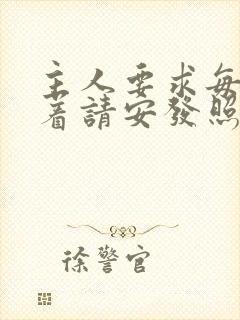 主人要求每
着請安發照
徐警官